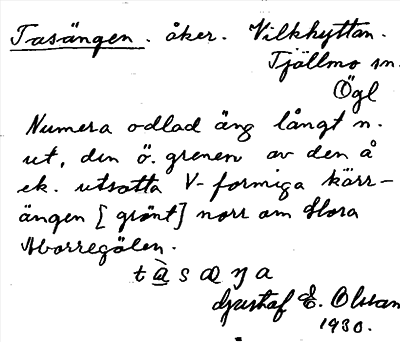 Tasängen. åker. Vilkhyttan.
Tjällmo sn.
Ögl
Numera odlad äng långt n.
ut, den ö. grenen av den å
ek. utsatta V-formiga kärr-
ängen [grönt] norr om Stora
Aborregölen.
tàsæŋa
Gustaf E. Olsson
1930.